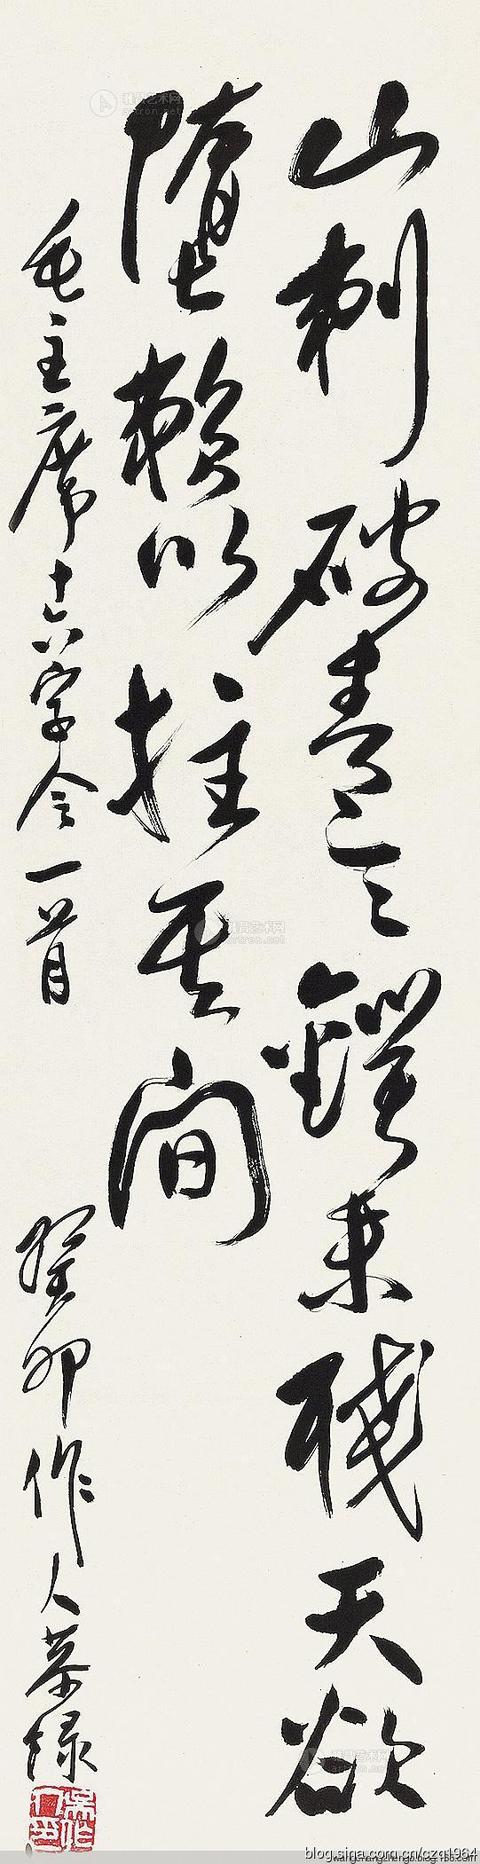 山刺破青天鍔未殘天欲
墮賴以拄其間
毛主席十六字令一首 癸卯作人恭録
吳作人印
blog.sina.com.cn/czq1964